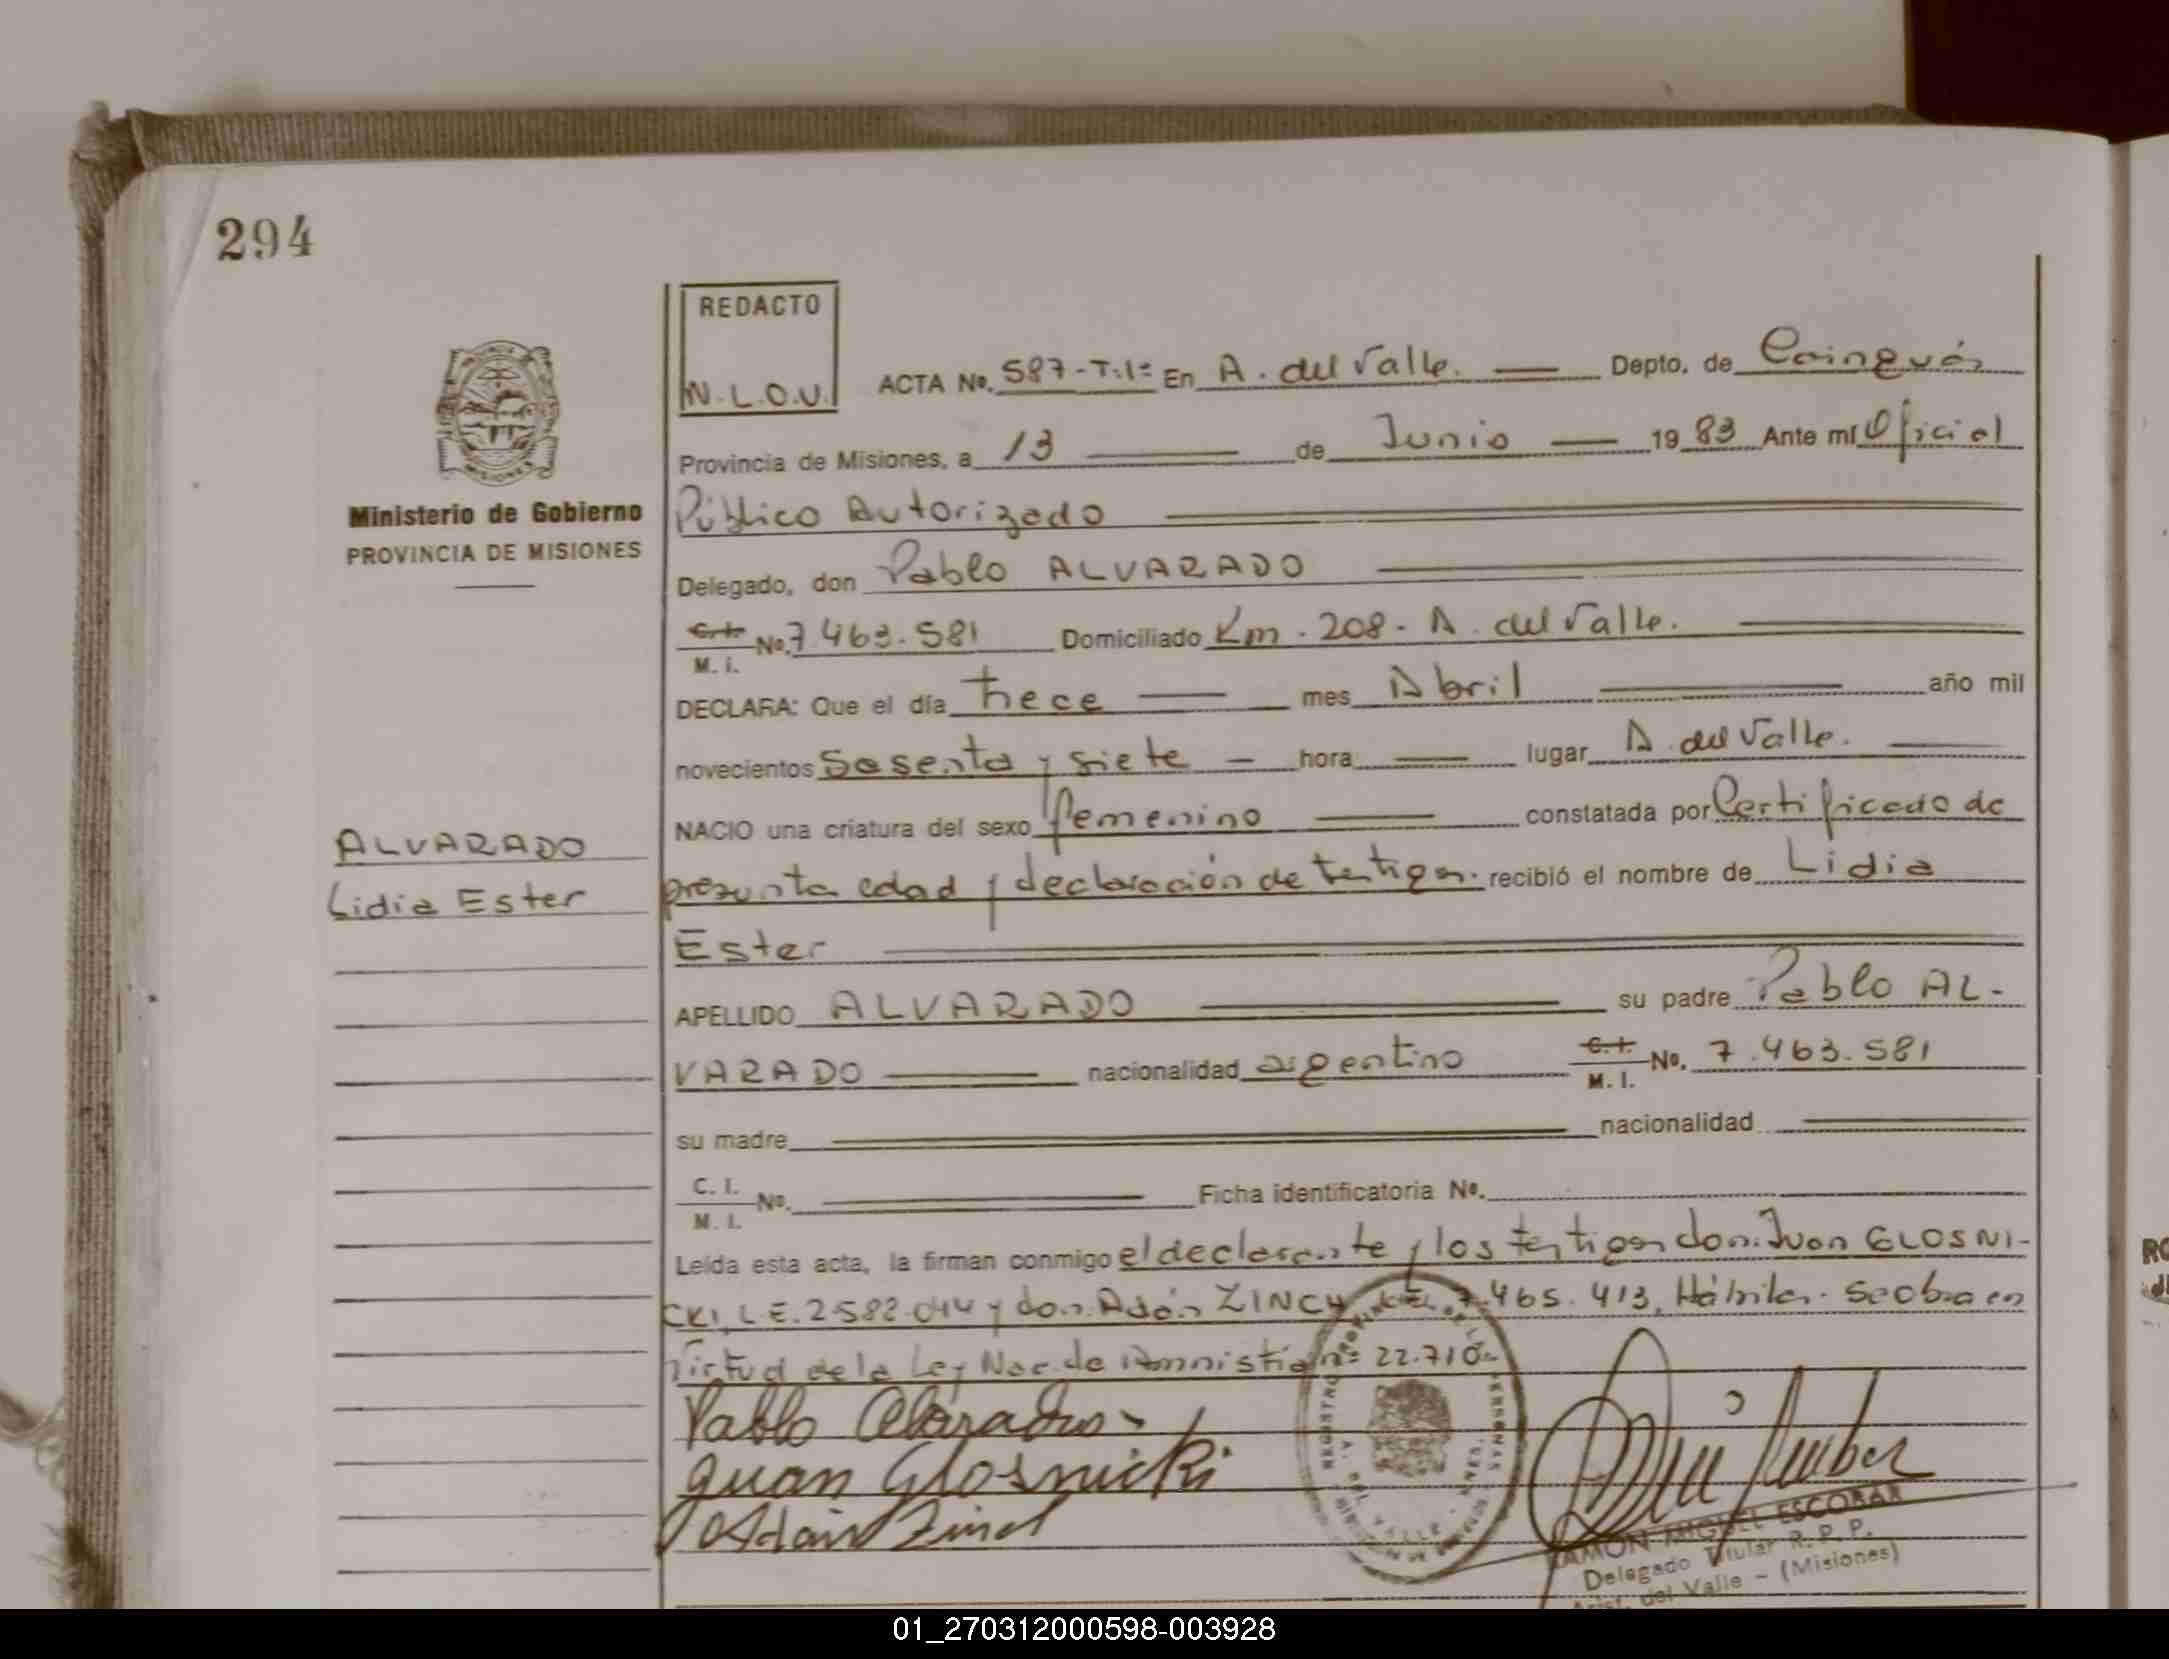 294
REDACTO
N.L.O.U.
ACTA No. 587-T:1º En A. del Valle. Depto. de Cainguás
Provincia de Misiones, a 13 de Junio 1983 Ante mí Oficial
Público Autorizado
Ministerio de Gobierno
PROVINCIA DE MISIONES
Delegado, don Pablo ALVARADO
C.I. M.I. No. 7.463.581 Domiciliado Km. 208 - A. del Valle.
DECLARA: Que el día trece mes Abril año mil
novecientos Sesenta y siete hora lugar A. del Valle.
NACIO una criatura del sexo femenino constatada por Certificado de
ALVARADO
Lidia Ester
presunta edad y declaración de testigos. recibió el nombre de Lidia
Ester
APELLIDO ALVARADO su padre Pablo AL-
VARADO nacionalidad argentino C.I. M.I. No. 7.463.581
su madre nacionalidad
C.I. M.I. No. Ficha identificatoria No.
Leída esta acta, la firman conmigo el declarante y los testigos don: Juan GLOSNI-
CKI, L.E. 2.582.044 y don. Adán ZINCH L.E. 7.465.413, Hábiles. Se obra en
virtud de la Ley Nac. de Amnistía nº 22.710.-
Pablo Alvarado
Juan Glosnicki
Adan Zinch
RAMON MIGUEL ESCOBAR
Delegado Titular R. P. P.
Arist. del Valle - (Misiones)
01_270312000598-003928